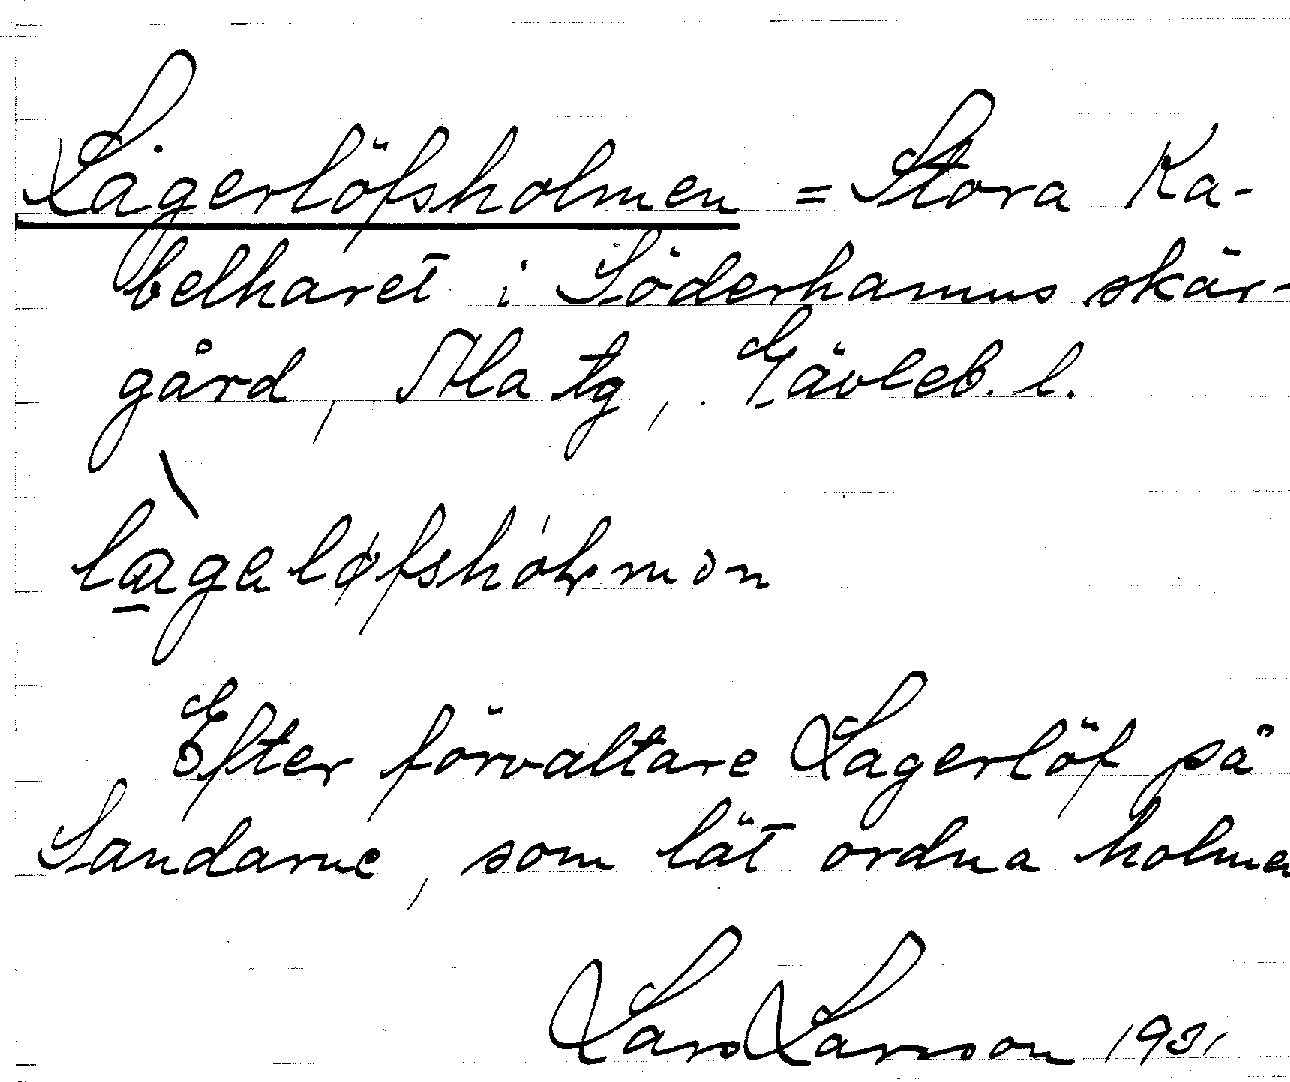 Lagerlöfsholmen = Stora Ka-
belharet i Söderhamns skär-
gård, Ala tg, Gävleb. l.
Efter förvaltare Lagerlöf på
Sandarne, som lät ordna holme
Lars Larsson 1931